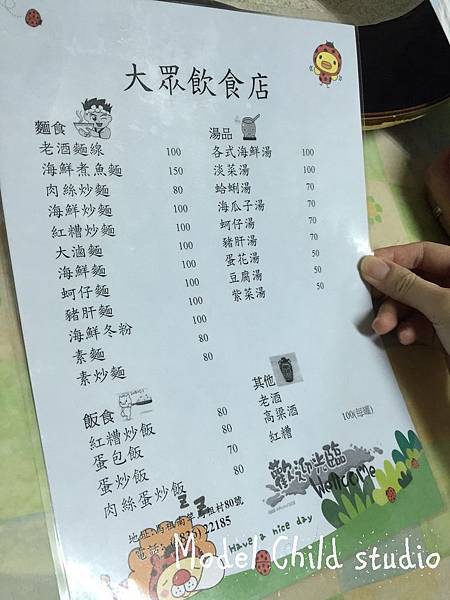 大眾飲食店
麵食
老酒麵線 100
海鮮煮魚麵 150
肉絲炒麵 80
海鮮炒麵 100
紅糟炒麵 100
大滷麵 100
海鮮麵 100
蚵仔麵 100
豬肝麵 100
海鮮冬粉 100
素麵 80
素炒麵 80
飯食
紅糟炒飯 80
蛋包飯 80
蛋炒飯 70
肉絲蛋炒飯 80
湯品
各式海鮮湯 100
淡菜湯 100
蛤蜊湯 70
海瓜子湯 70
蚵仔湯 70
豬肝湯 70
蛋花湯 50
豆腐湯 50
紫菜湯 50
其他
老酒 100(每碗)
高梁酒
紅糟
歡迎光臨
Welcome
地址:馬祖南竿 村80號
電話: 22185
Have a nice day
Model Child studio